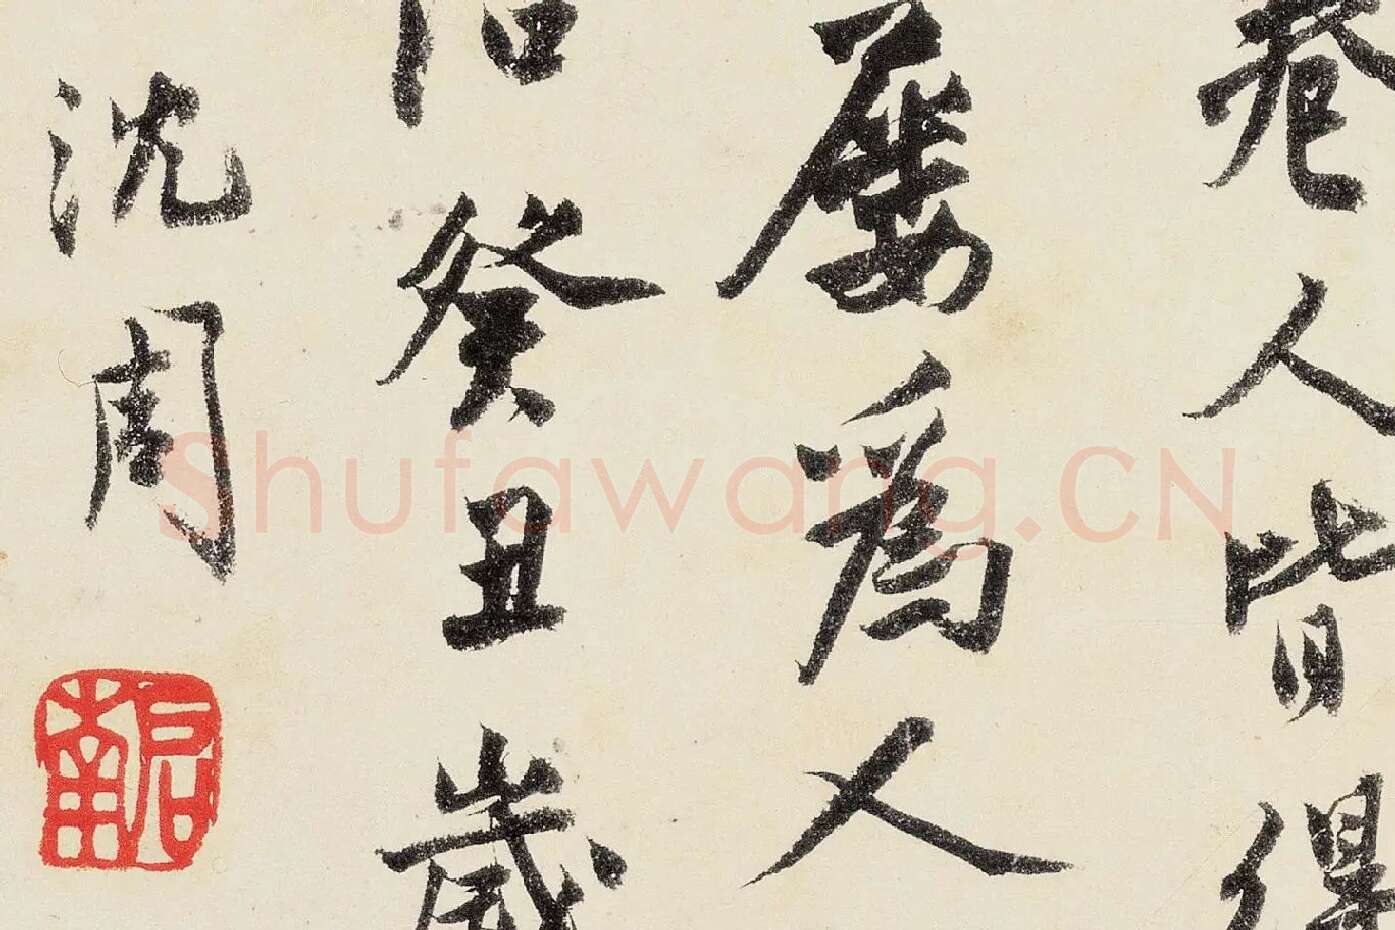 卷人皆得
屢爲人
治癸丑歲
沈周
啟南
Shufawang.CN